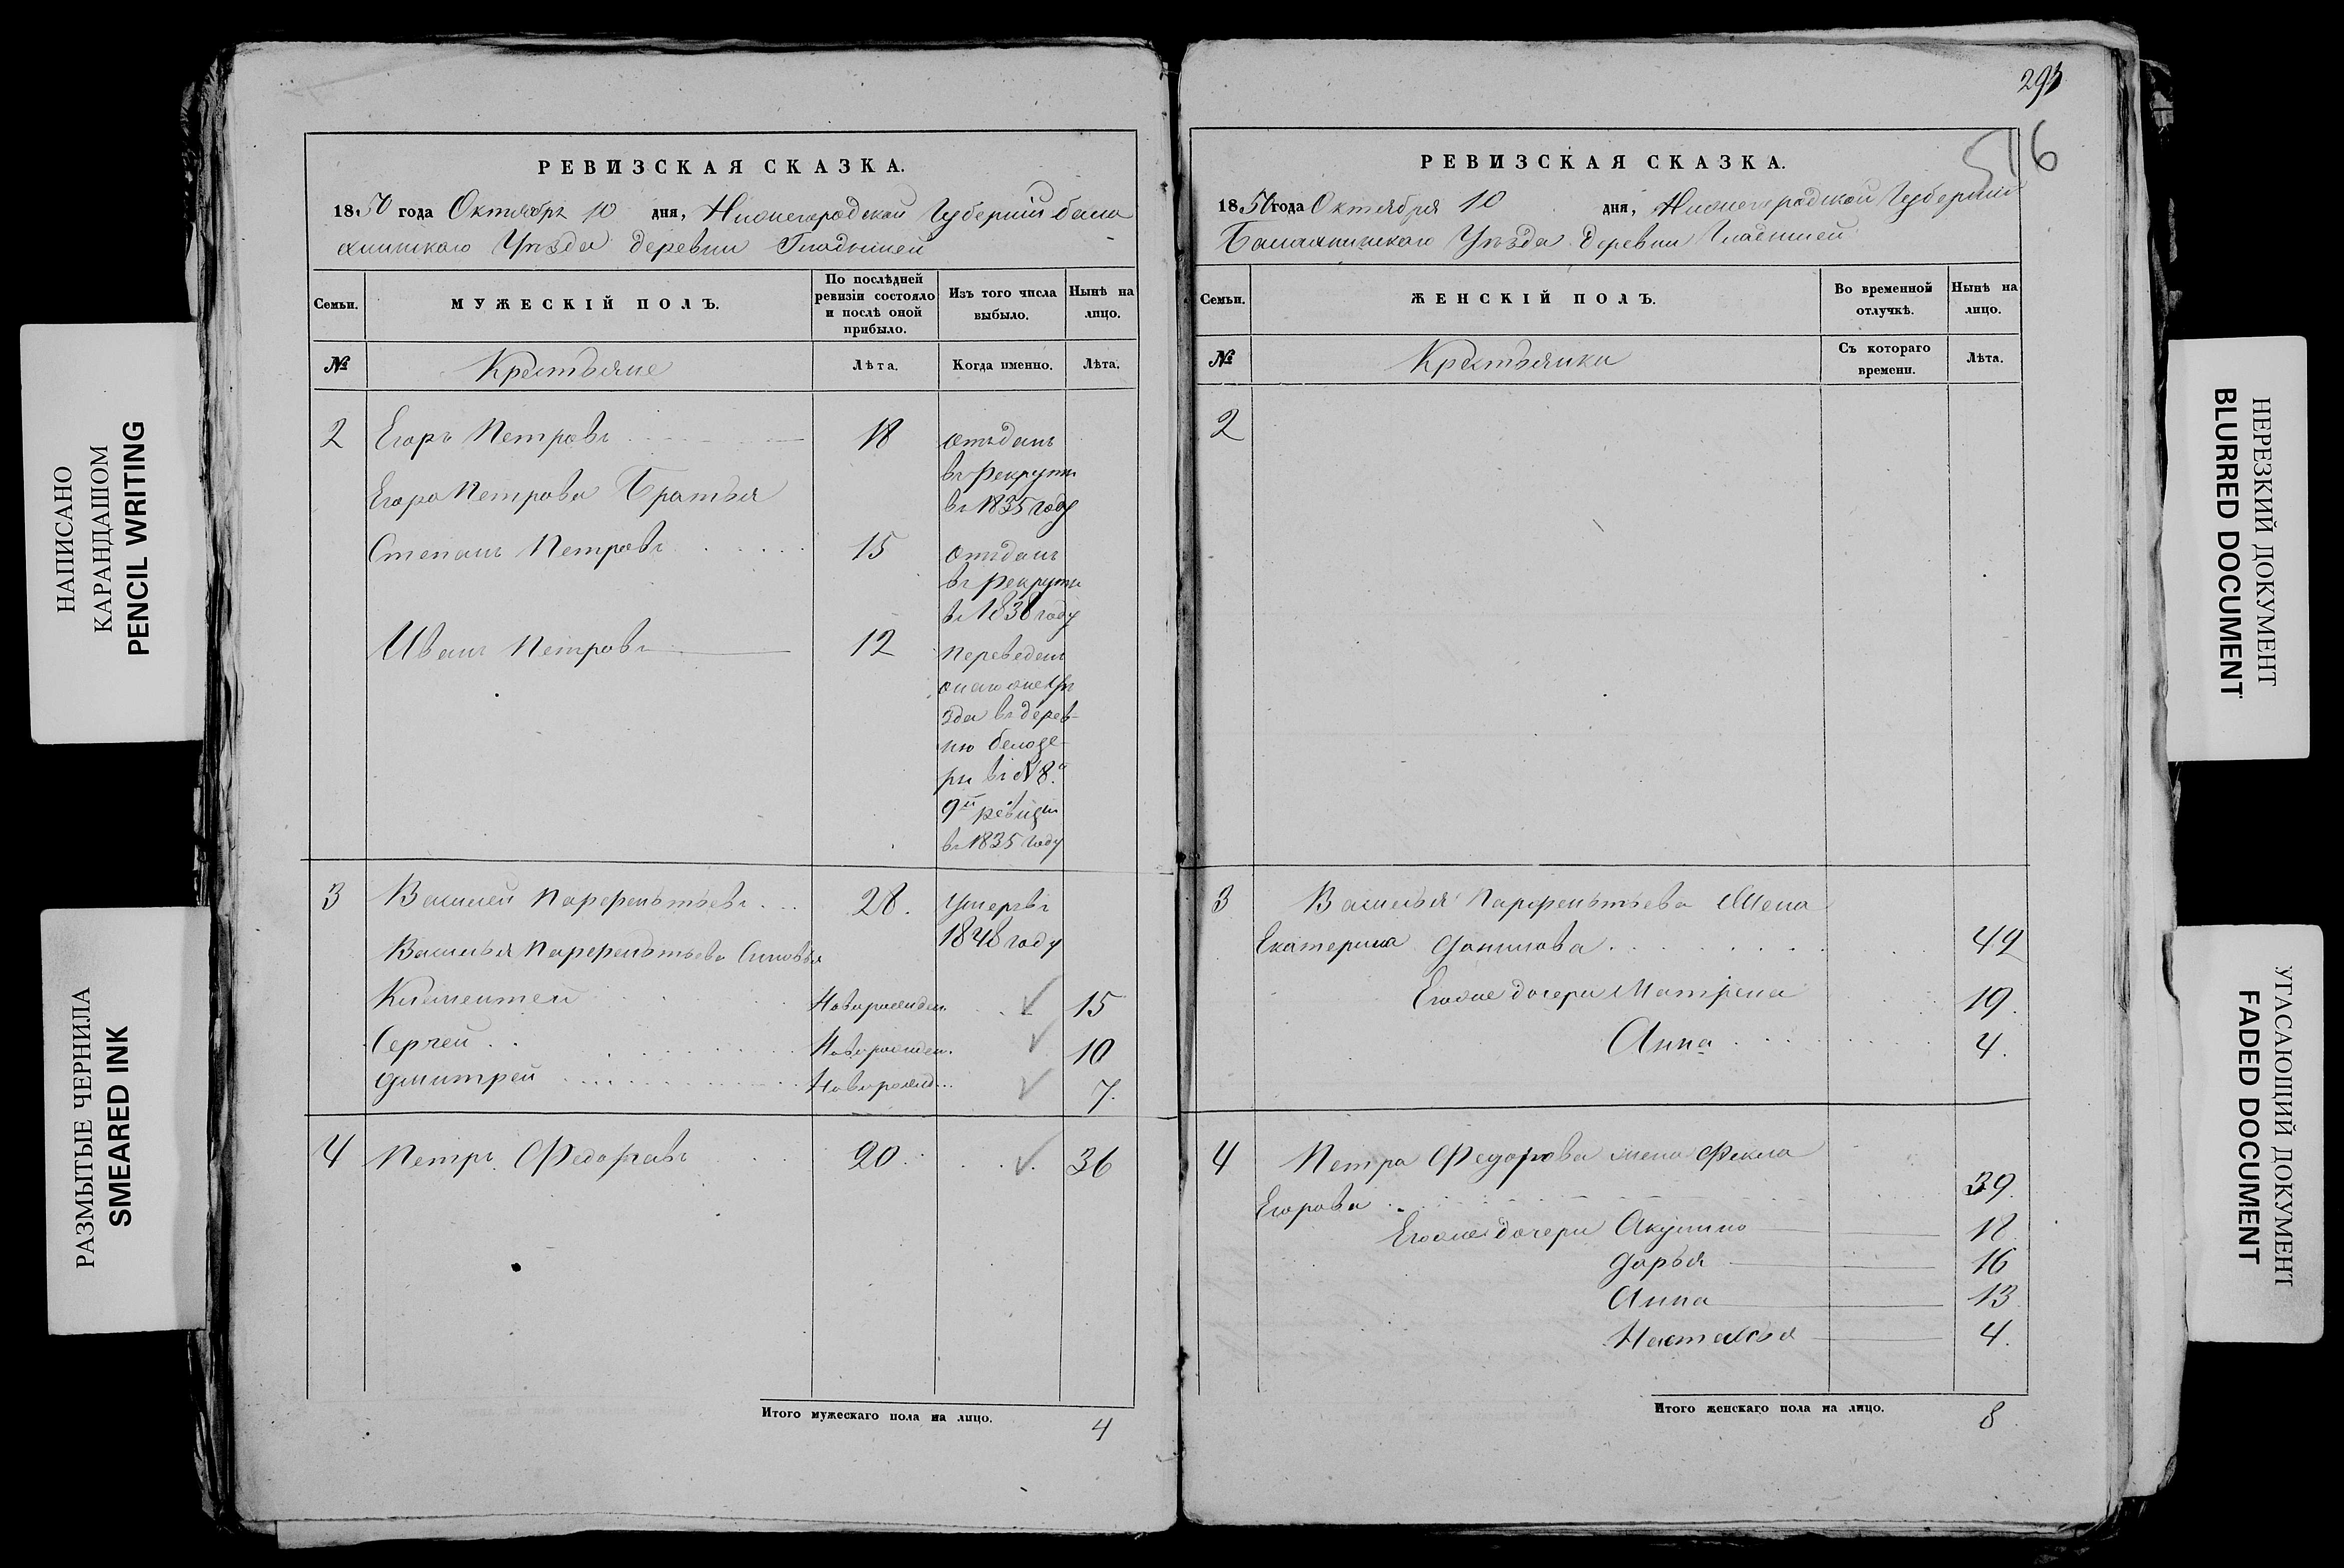 НАПИСАНО
КАРАНДАШОМ
PENCIL WRITING
РАЗМЫТЫЕ ЧЕРНИЛА
SMEARED INK
РЕВИЗСКАЯ СКАЗКА.
1850 года Октября 10 дня, Нижегородской Губернии Бала
хнинскаго Уѣзда деревни
Семьи.
МУЖЕСКІЙ ПОЛЪ.
По послѣдней ревизіи состояло и послѣ оной прибыло.
Изъ того числа выбыло.
Нынѣ на лицо.
№
Крестьяне
Лѣта.
Когда именно.
Лѣта.
2 Егоръ Петровъ 18 отъдань
въ рекруты
Егора Петрова Братья
въ 1835 году
Степанъ Петровъ 15 отъдань
въ рекруты
въ 1838 году
Иванъ Петровъ 12 переведенъ
онаго же Уѣ
зда въ дерев-
ню
въ № 8.
9й ревизіи
въ 1835 году
3 Василей Парфентьевъ 28. умеръ въ
1848 году
Василья Парфентьева Сыновья
Климентей Новорожден. 15
Сергей Новорожден. 10
Дмитрей Новорожд... 7.
4 Петръ Федоровъ 20. 36
Итого мужескаго пола на лицо. 4
293
516
РЕВИЗСКАЯ СКАЗКА.
1850 года Октября 10 дня, Нижегородской Губернии
Балахнинскаго Уѣзда деревни
Семьи.
ЖЕНСКІЙ ПОЛЪ.
Во временной отлучкѣ.
Нынѣ на лицо.
№
Крестьянки
Съ котораго времени.
Лѣта.
2
3 Василья Парфентьева Жена
Екатерина Данилова 49
Егоже дочери Матрена 19.
Анна 4.
4 Петра Федорова жена Фекла
Егорова 39.
Егоже дочери Акулина 18
Дарья 16
Анна 13
Настасья 4.
Итого женскаго пола на лицо. 8
НЕРЕЗКИЙ ДОКУМЕНТ
BLURRED DOCUMENT
УГАСАЮЩИЙ ДОКУМЕНТ
FADED DOCUMENT